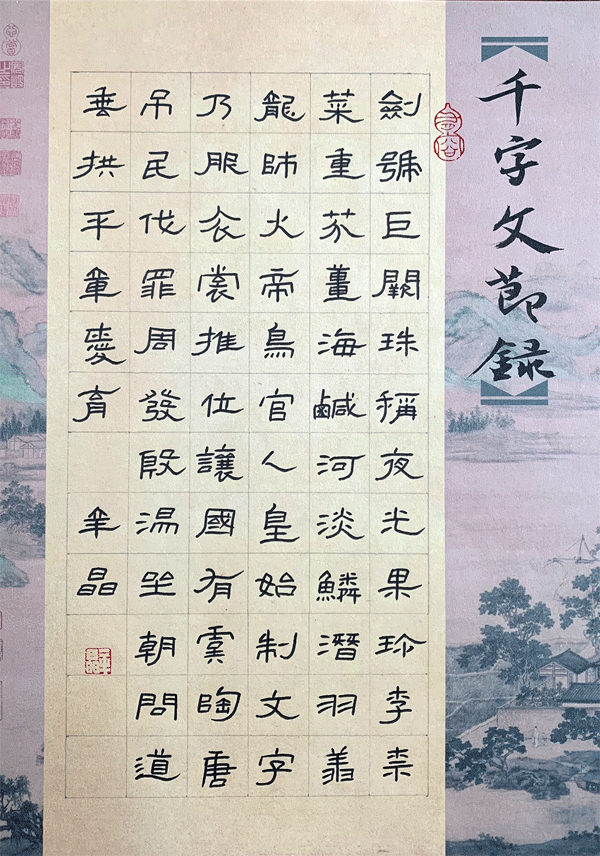 千字文節錄
劍號巨闕珠稱夜光果珍李柰
菜重芥薑海鹹河淡鱗潛羽翔
龍師火帝鳥官人皇始制文字
乃服衣裳推位讓國有虞陶唐
吊民伐罪周發殷湯坐朝問道
垂拱平章愛育 晶